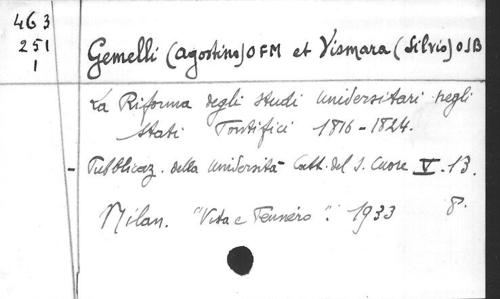 463
251
1
Gemelli (Agostino) OFM et Vismara (Silvio) OSB
La Riforma degli studi universitari negli
Stati Pontifici 1816-1824.
- Pubblicaz. della Università Catt. del S. Cuore V. 13.
Milan. "Vita e Pensiero". 1933 8°.